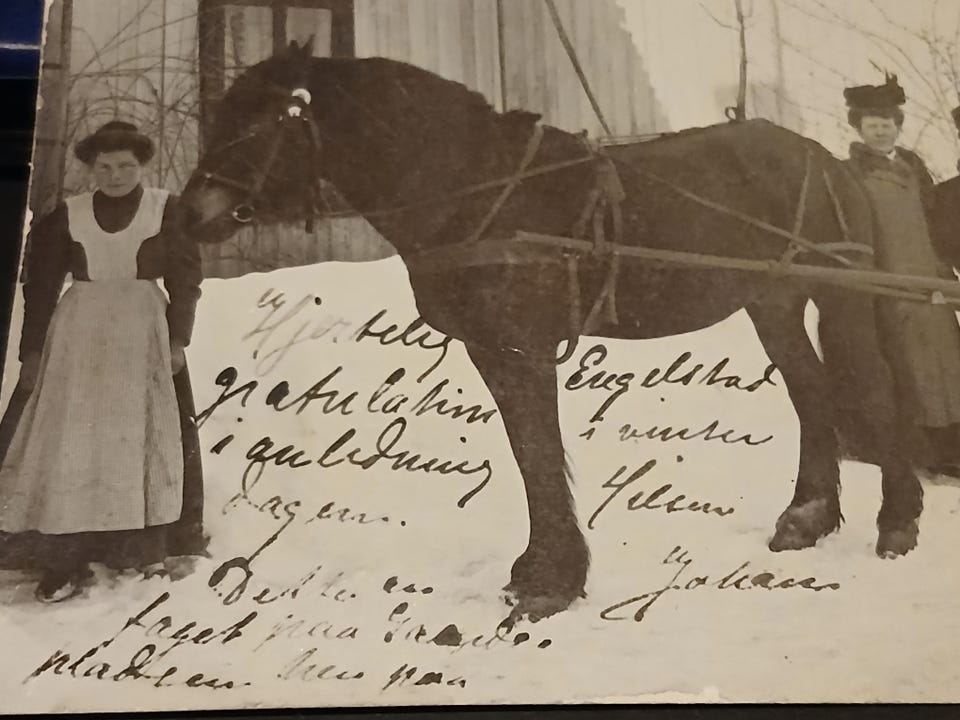 Hjertelig
gratulation
i anledning
dagen.
Dette er
taget paa Gaards-
pladsen her paa
Engelstad
i vinter
Hilsen
Johan